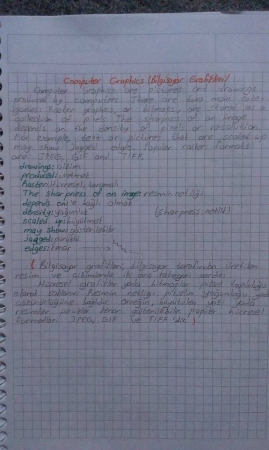 Computer Graphics (Bilgisayar Grafikleri)
Computer Graphics are pictures and drawings
produced by computers. There are two main
Raster graphics, or bitmaps, are stored as a
collection of pixels. The sharpness of an image
depends on the density of pixels or resolution.
For example text or pictures that are scaled up
may show jagged edges. Popular raster formats
are JPEG, GIF and TIFF.
drawings:
produced: üretmek
Raster: Hücresel,
The sharpness of an image: resmin netliği
depends on: 'e bağlı olmak
density: yoğunluk (sharpness: netlik)
scaled up: büyütmek
may show: gösterebilir
jagged:
edges: kenar
( Bilgisayar grafikleri, bilgisayar tarafından üretilen
resim ve
Hücresel grafikler yada bitmapler piksel topluluğu
olarak saklanır. Resmin netliği piksellerin yoğunluğu yada
çözünürlüğüne bağlıdır. Örneğin, büyütülen yazı yada
resimler kenar gösterebilir. Popüler hücresel
formatlar JPEG, GIF ve TIFF 'dir. )